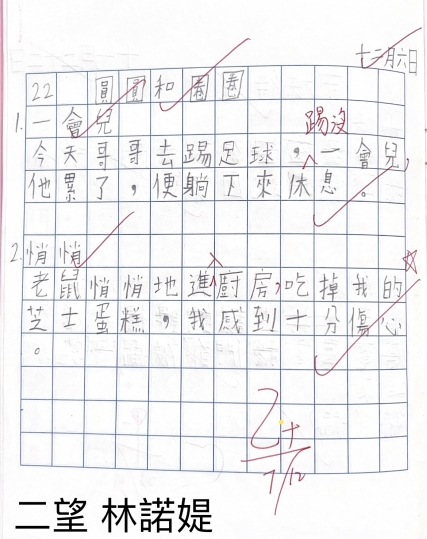 十二月六日
22 圓圓和圈圈
踢沒
1. 一會兒
今天哥哥去踢足球,一會兒,
他累了,便躺下來休息。
2. 悄悄
入
老鼠悄悄地進廚房,吃掉我的
芝士蛋糕,我感到十分傷心
。
乙+
7/12
二望 林諾媞